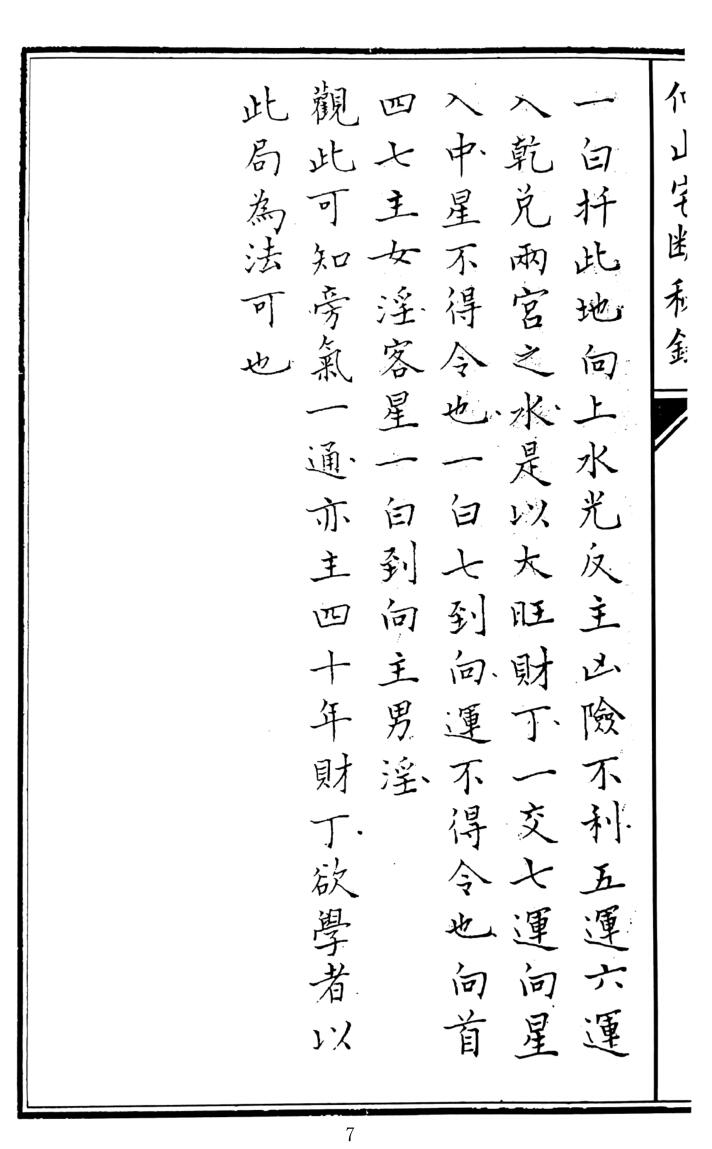 一白扦此地向上水光反主凶險不利五運六運
入乾兌兩宮之水是以大旺財丁一交七運向星
入中星不得令也一白七到向運不得令也向首
四七主女淫客星一白到向主男淫
觀此可知旁氣一通亦主四十年財丁欲學者以
此局為法可也
7